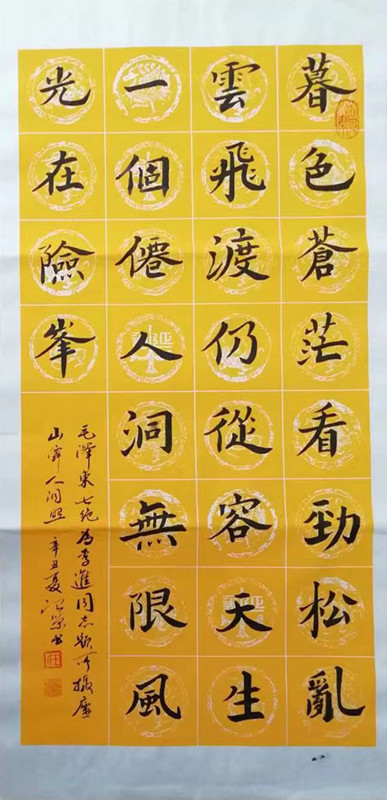 暮色蒼茫看勁松亂
雲飛渡仍從容天生
一個僊人洞無限風
光在險峯
毛澤東七绝为李進同志题所攝廬
山僊人洞照 辛丑夏 书